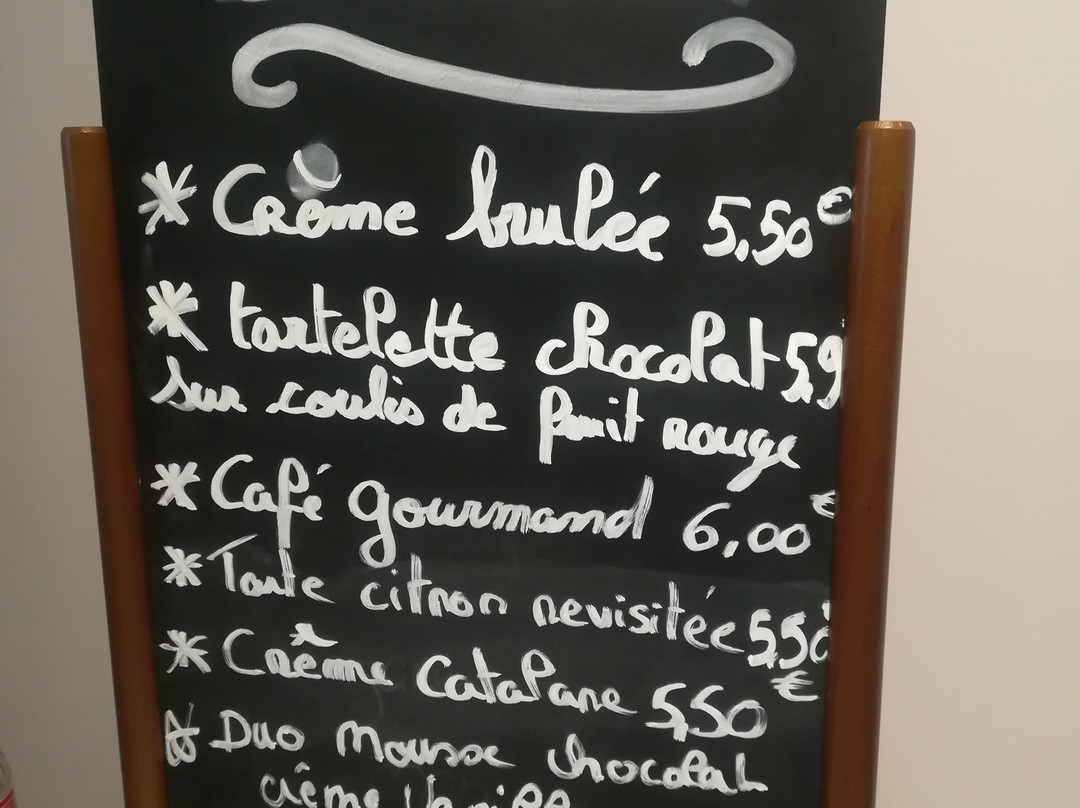 * Crème brulée 5,50€
* tartelette chocolat 5,9
sur coulis de fruit rouge
* Café gourmand 6,00€
* Tarte citron revisitée 5,50
* Crême Catalane 5,50€
* Duo mousse chocolat
crème Vanill